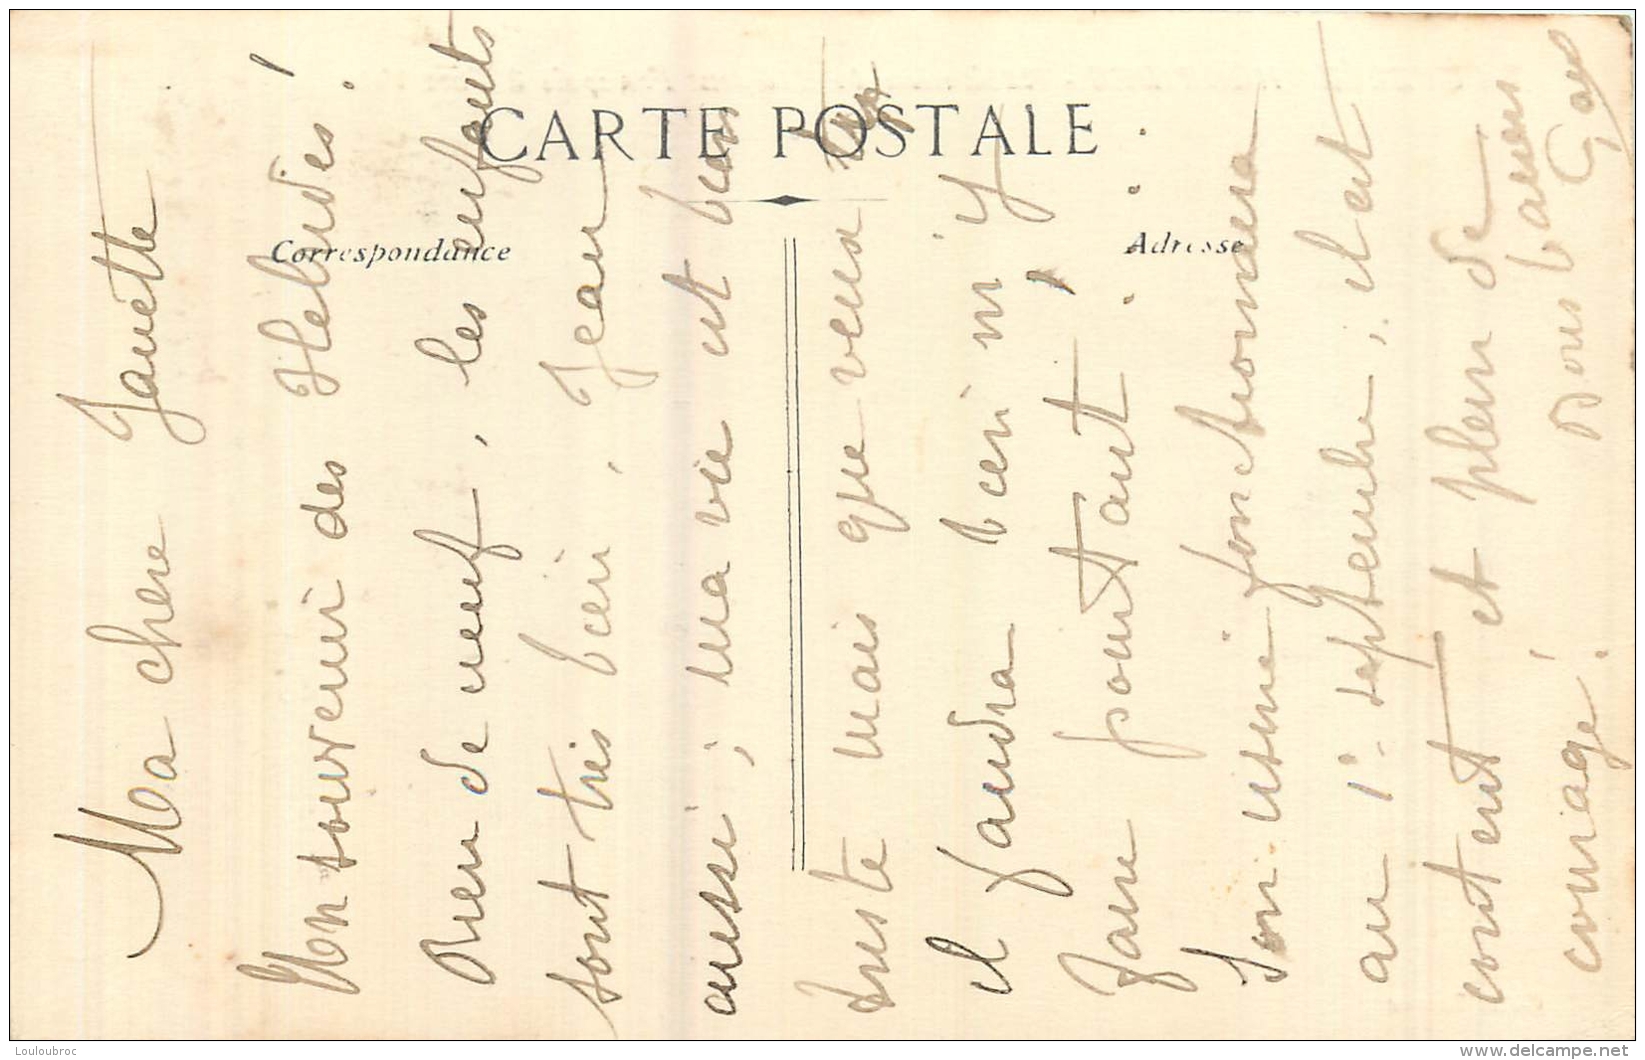 CARTE POSTALE
Correspondance
Adresse
Ma chère Janette
Mon souvenir des
Rien de neuf, les enfants
sont très bien, Jean
aussi; ma vie est bien
triste mais que veux tu
il faudra bien m'y
faire pourtant!
Son usine fonctionnera
au 1er septembre, il est
content et plein de
courage!
Bons baisers
Louloubroc
www.delcampe.net